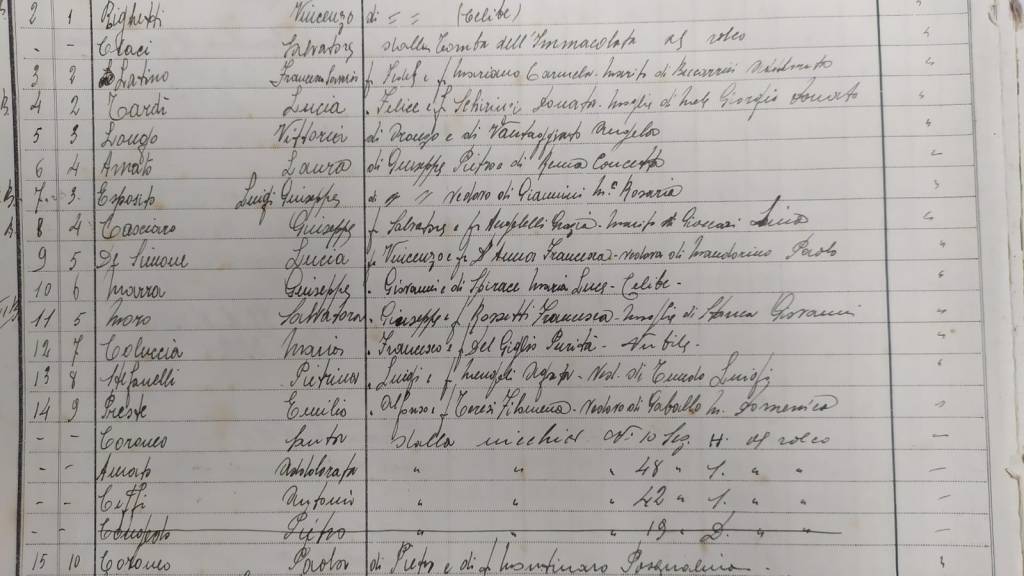 2 1 Righetti Vincenzo di " " (Celibe) "
- - Craci Salvatore dalla Tomba dell'Immacolata al rolco "
3 2 Latino f. Mariano Carmela. Marito di Addolorata "
4 2 Tardi Lucia . Felice e f. Donata. Moglie di Giorgio Donato "
5 3 Longo Vittoria di Oronzo e di Vantaggiato Angela "
6 4 Amato Laura di Giuseppe Pietro e di Concetta "
7 - 3 Esposito Luigi Giuseppe di " " vedovo di Giannini M.a Rosaria "
8 4 Casciaro Giuseppe f. Salvatore e f. Grazia. Marito di Lina "
9 5 De Simone Lucia f. Vincenzo e f. D'Anna Francesca. vedova di Mandorino Paolo "
10 6 Marra Giuseppe . Giovanni e di Maria Luce. Celibe. "
11 5 Moro Salvatora . Giuseppe e f. Rossetti Francesca. Moglie di Stanca Giovanni "
12 7 Coluccia Maria . Francesco e f. Del Giglio Purita. Nubile. "
13 8 Stefanelli Pietrina . Luigi e f. Mengoli Agata. Ved. di Luigi "
14 9 Preste Emilio . Alfonso e f. Filomena. Vedovo di Taballo M. Domenica "
- - Coroneo Santa dalla nicchia N. 10 Seg. H. al rolco -
- - Amato Addolorata " " " 48 " I. " " -
- - Ciffi Antonio " " " 42 " I. " " -
- - Pietro " " " 19 " D. " " -
15 10 Coroneo Paola di Pietro e di f. Martinaro Pasqualina. "